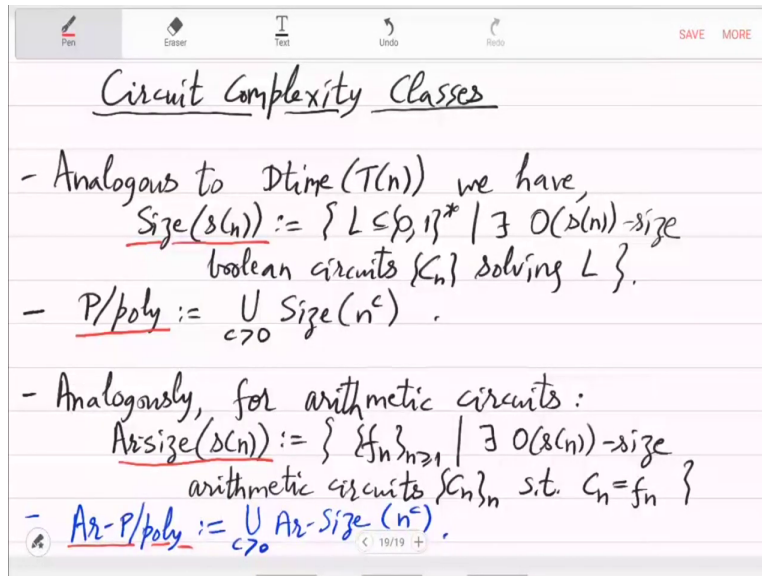 Pen Eraser Text Undo Redo SAVE MORE
Circuit Complexity Classes
- Analogous to Dtime (T(n)) we have,
Size(s(n)) := { L ⊆ {0,1}* | ∃ O(s(n))-size
boolean circuits {Cn} solving L }.
- P/poly := ∪ Size(n^c) .
c>0
- Analogously, for arithmetic circuits :
Ar-size(s(n)) := { {fn}n≥1 | ∃ O(s(n))-size
arithmetic circuits {Cn}n s.t. Cn = fn }
- Ar-P/poly := ∪ Ar-Size (n^c) .
c>0
< 19/19 +